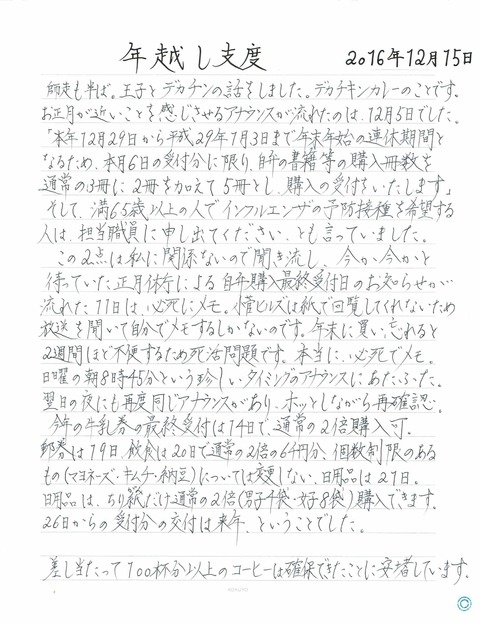 年越し支度
2016年12月15日
師走も半ば。王子とデカチンの話をしました。デカチキンカレーのことです。
お正月が近いことを感じさせるアナウンスが流れたのは、12月5日でした。
「本年12月29日から平成29年1月3日まで年末年始の連休期間と
なるため、本月6日の受付分に限り、自弁の書籍等の購入冊数を
通常の3冊に2冊を加えて5冊とし、購入の受付をいたします」
そして、満65歳以上の人でインフルエンザの予防接種を希望する
人は、担当職員に申し出てください、とも言っていました。
この2点は私に関係ないので聞き流し、今か今かと
待っていた正月休みによる自弁購入最終受付日のお知らせが
流れた11日は、必死にメモ。ヒルズは紙で回覧してくれないため
放送を聞いて自分でメモするしかないのです。年末に買い忘れると
2週間ほど不便するため死活問題です。本当に、必死でメモ。
日曜の朝8時45分という珍しいタイミングのアナウンスにあたふた。
翌日の夜にも再度同じアナウンスがあり、ホッとしながら再確認。
今年の牛乳券の最終受付は14日で、通常の2倍購入可。
郵券は19日、飲食は20日で通常の2倍の64円分、個数制限のある
もの(マヨネーズ・キムチ・納豆)については変更しない、日用品は21日。
日用品は、ちり紙だけ通常の2倍(男子4袋・女子8袋)購入できます。
26日からの受付分の交付は来年、ということでした。
差し当たって100杯分以上のコーヒーは確保できたことに安堵しています。
KOKUYO
©